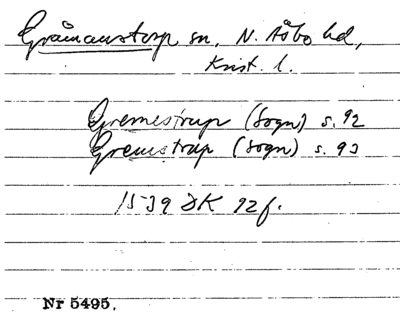 Gråmanstorp sn, N. Åsbo hd,
Krist. l.
Gremestrup (Sogn) s. 92
Gremstrup (Sogn) s. 93
1539 DK 92f.
Nr 5495.